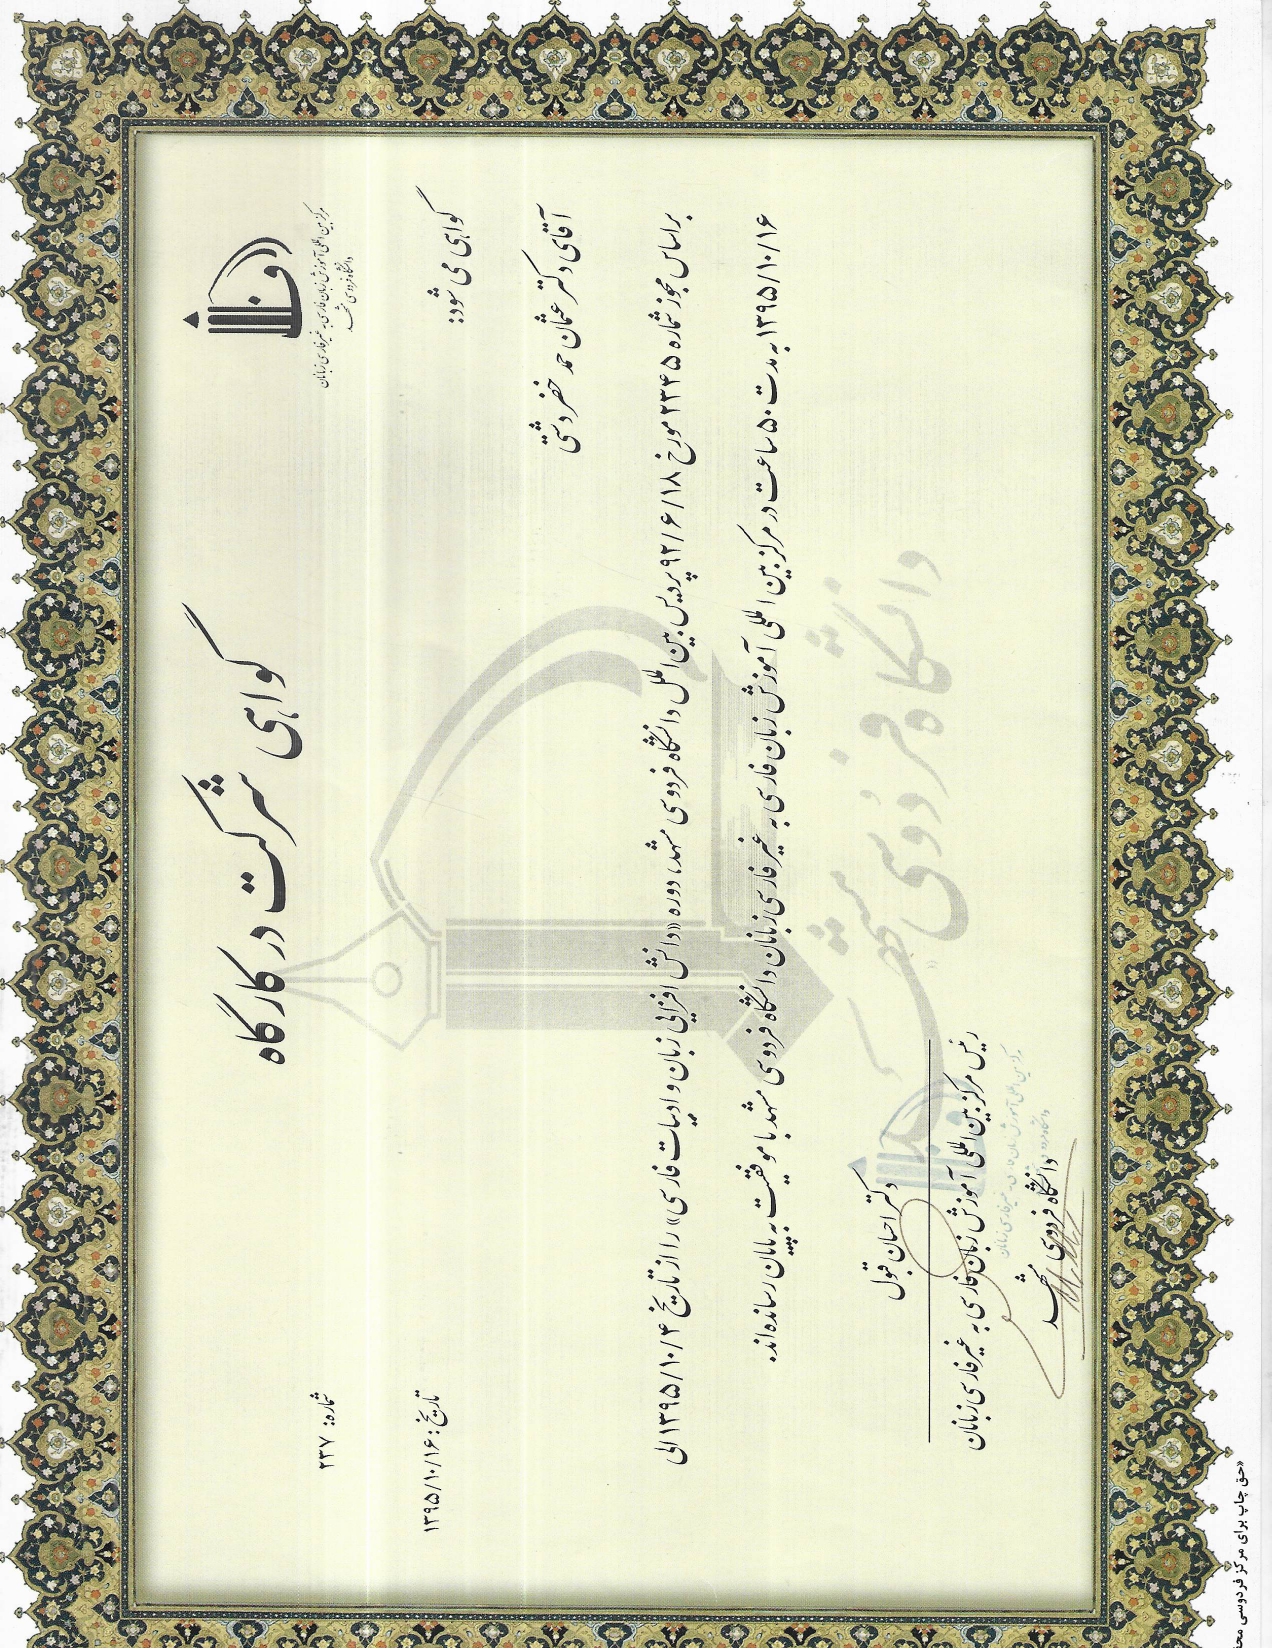 مرکز بین المللی آموزش زبان فارسی به غیر فارسی زبانان
دانشگاه فردوسی مشهد
گواهی شرکت در کارگاه
شماره: ۲۳۷
تاریخ: ۱۳۹۵/۱۰/۱۶
گواهی می شود:
آقای دکتر عثمان حمد خضر دشتی
براساس مجوز شماره ۲۳۴۵ مورخ ۹۲/۶/۱۸ پردیس بین الملل دانشگاه فردوسی مشهد، دوره «دانش افزایی زبان و ادبیات فارسی» را از تاریخ ۱۳۹۵/۱۰/۴ الی
۱۳۹۵/۱۰/۱۶ به مدت ۵۰ ساعت در مرکز بین المللی آموزش زبان فارسی به غیر فارسی زبانان دانشگاه فردوسی مشهد با موفقیت به پایان رسانده اند.
دانشگاه فردوسی مشهد
دکتر احسان قبول
رئیس مرکز بین المللی آموزش زبان فارسی به غیر فارسی زبانان
دانشگاه فردوسی مشهد
مرکز بین المللی آموزش زبان فارسی به غیر فارسی زبانان
«حق چاپ برای مرکز فردوسی